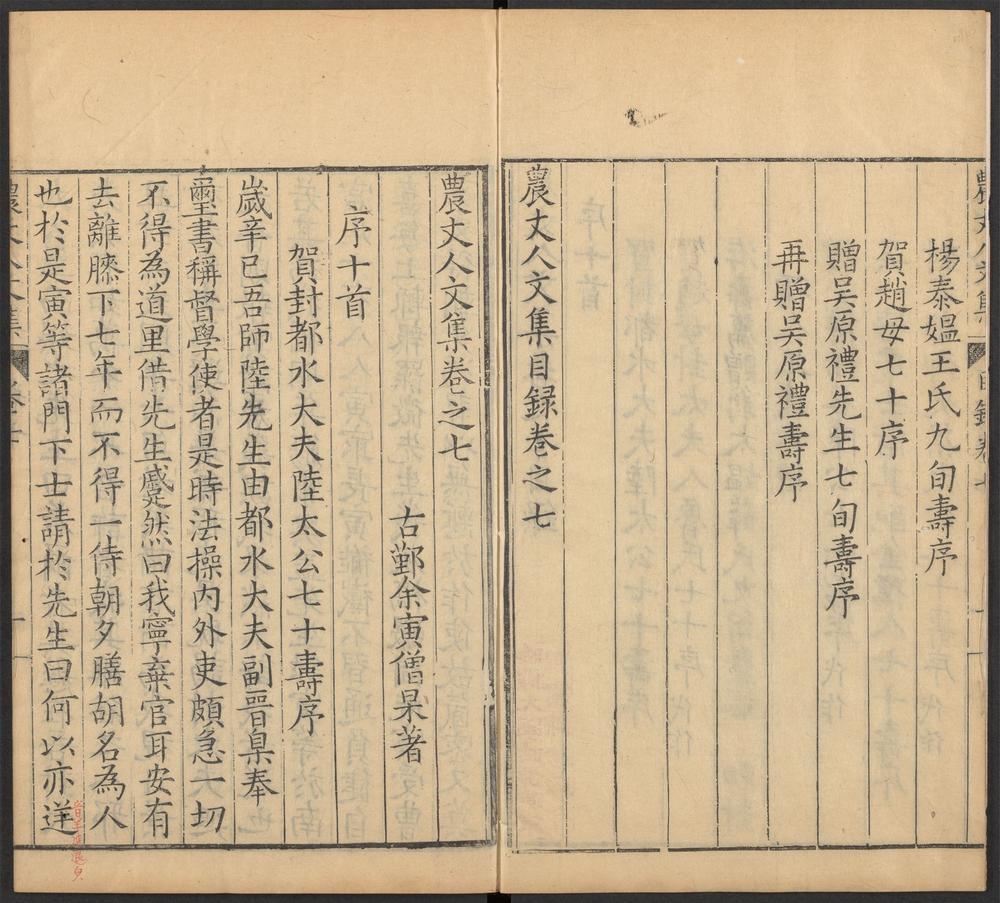 農丈人文集
目錄卷七
楊泰媪王氏九旬壽序
賀趙母七十序
贈吴原禮先生七旬壽序
再贈吴原禮壽序
農丈人文集目録卷之七
農丈人文集卷之七
古鄞余寅僧杲著
序十首
賀封都水大夫陸太公七十壽序
嵗辛巳吾師陸先生由都水大夫副晉臬奉
璽書稱督學使者是時法操内外吏頗急一切
不得為道里借先生蹙然曰我寧棄官耳安有
去離膝下七年而不得一侍朝夕膳胡名為人
也於是寅等諸門下士請於先生曰何以亦逆
農丈人文集
卷七
一